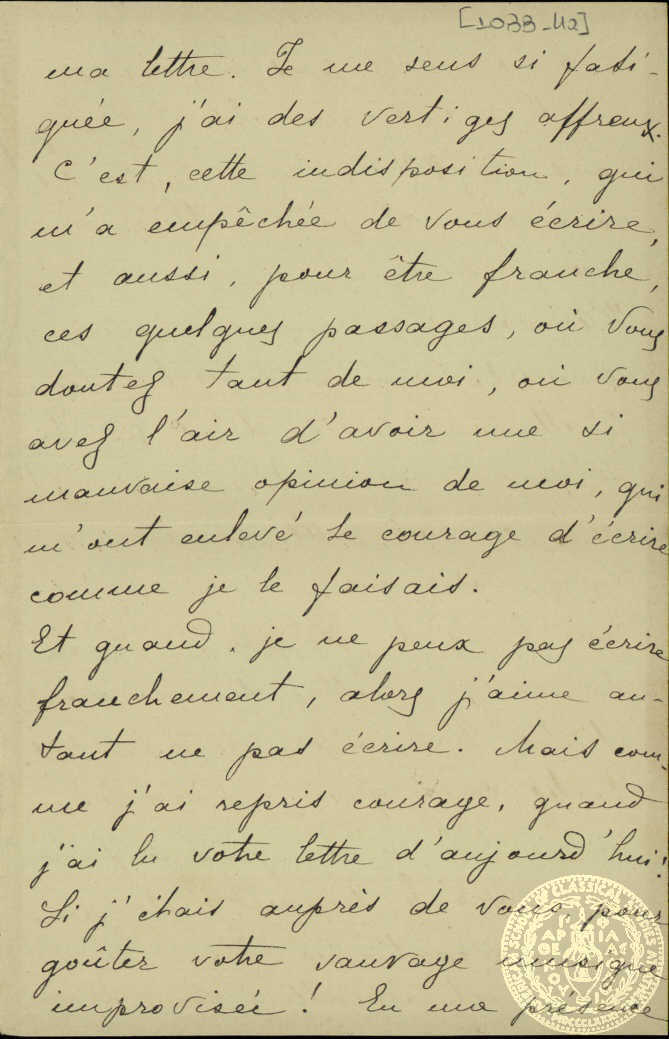 [1033-42]
ma lettre. Je me sens si fati-
guée, j'ai des vertiges affreux.
C'est, cette indisposition, qui
m'a empêchée de vous écrire,
et aussi, pour être franche,
ces quelques passages, où vous
doutez tant de moi, où vous
avez l'air d'avoir une si
mauvaise opinion de moi, qui
m'ont enlevé le courage d'écrire
comme je le faisais.
Et quand, je ne peux pas écrire
franchement, alors j'aime au-
tant ne pas écrire. Mais com-
me j'ai repris courage, quand
j'ai lu votre lettre d'aujourd'hui!
Si j'étais auprès de vous, pour
goûter votre sauvage musique
improvisée! En ma présence